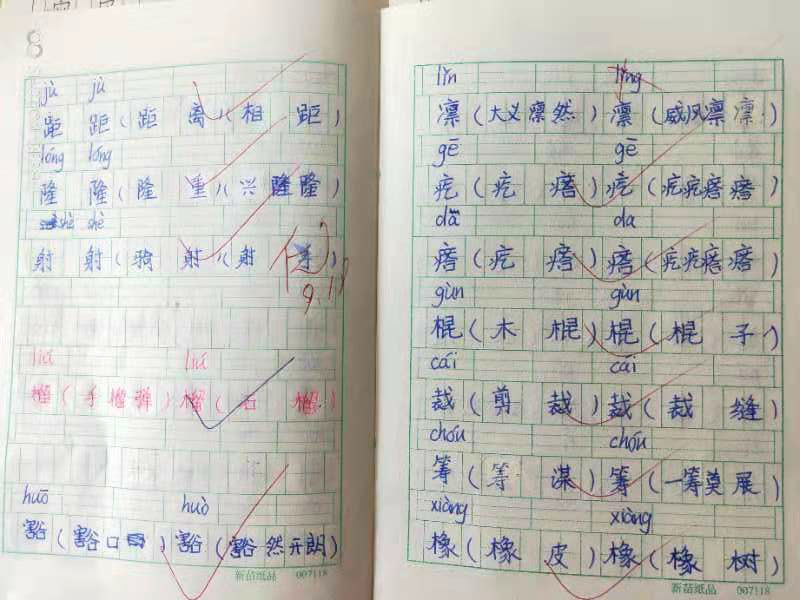 8
jù jù
距 距(距 离)(相 距)
lóng lóng
隆 隆(隆 重)(兴 隆 隆)
shè shè
射 射(骑 射)(射 手)
9.18
liú liú
榴(手榴弹)榴(石 榴)
huō huò
豁(豁口)豁(豁然开朗)
新苗纸品 007118
lǐn lǐng
凛(大义凛然)凛(威风凛凛)
gē gē
疙(疙 瘩)疙(疙疙瘩瘩)
dā da
瘩(疙 瘩)瘩(疙疙瘩瘩)
gùn gùn
棍(木 棍)棍(棍 子)
cái cái
裁(剪 裁)裁(裁 缝)
chóu chóu
筹(筹 谋)筹(一筹莫展)
xiàng xiàng
橡(橡 皮)橡(橡 树)
新苗纸品 007118